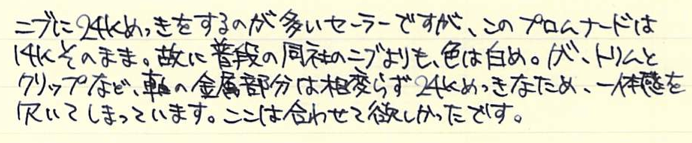 ニブに24Kめっきをするのが多いセーラーですが、このプロムナードは
14Kそのまま。故に普段の同社のニブよりも、色は白め。が、トリムと
クリップなど、軸の金属部分は相変らず24Kめっきなため、一体感を
欠いてしまっています。ここは合わせて欲しかったです。